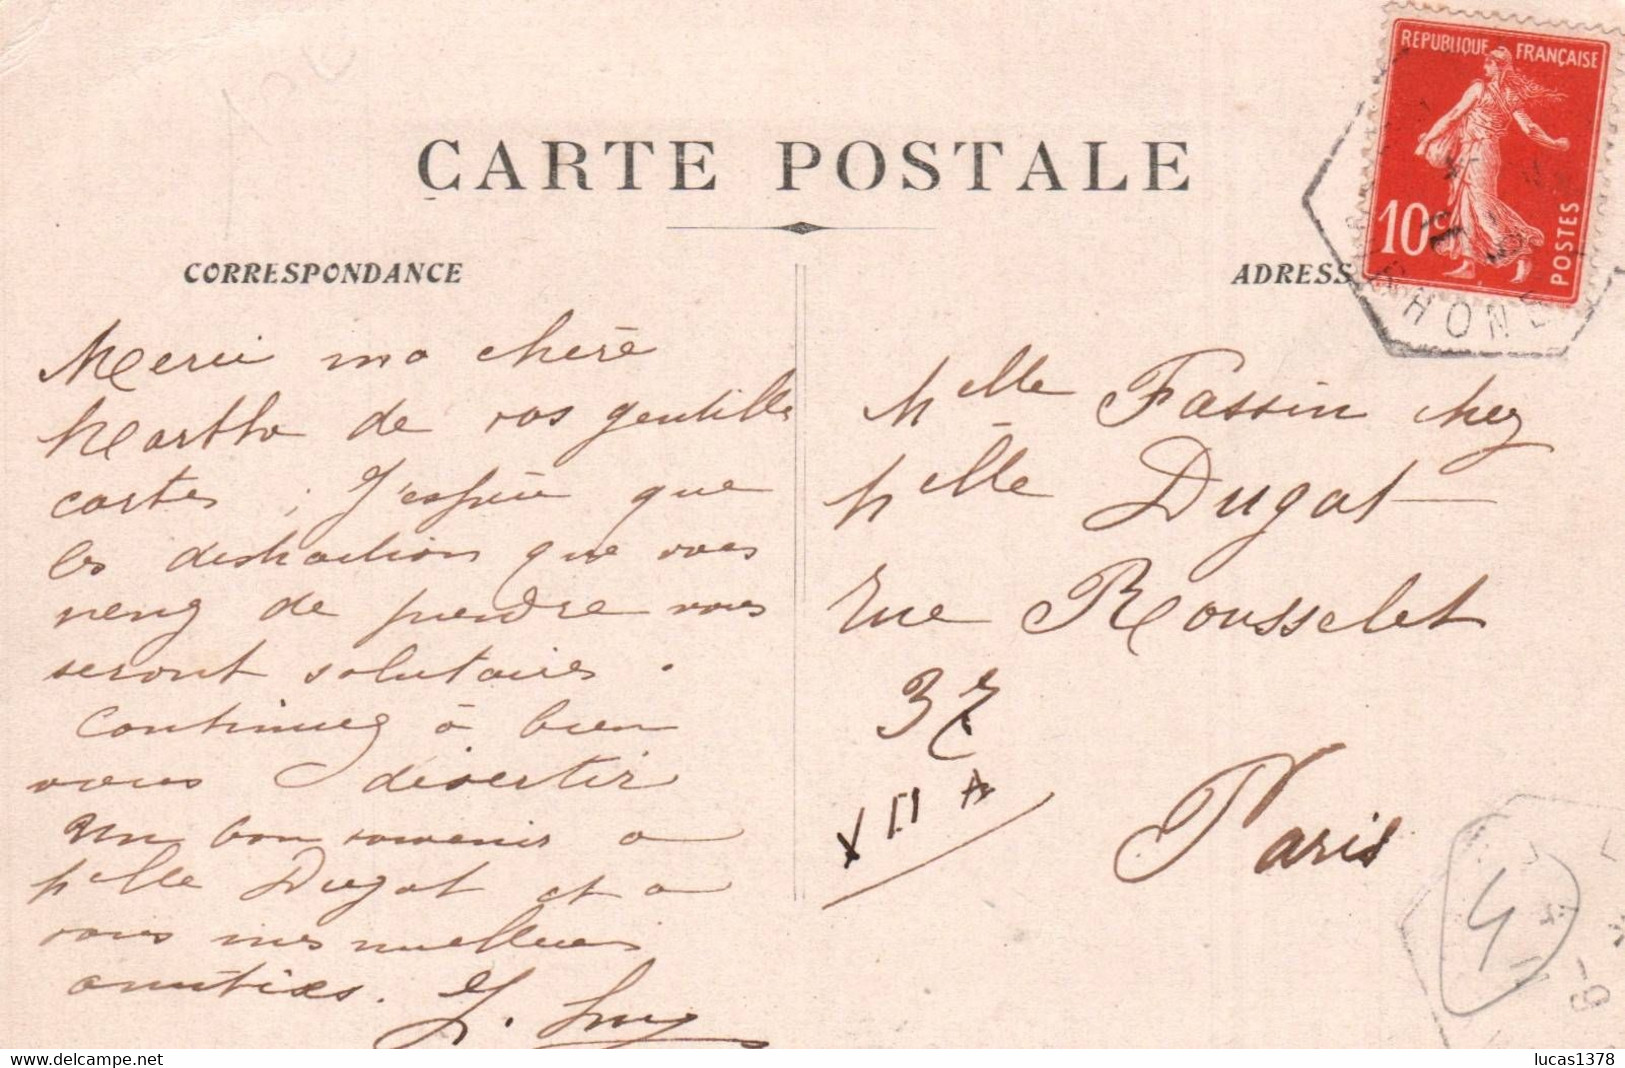 CARTE POSTALE
REPUBLIQUE FRANÇAISE
10c
POSTES
RHONE
CORRESPONDANCE
ADRESS
Merci ma chère
Marthe de vos gentilles
cartes ; J'espère que
les distraction que vous
venez de prendre vous
seront salutaires.
Continuez à bien
vous divertir
Un bon souvenir a
Melle Dugat et a
vous mes meilleures
amitiés.
Melle Fassin chez
Melle Dugat
rue Rousselet
37
XII A
Paris
4
delcampe.net
lucas1378